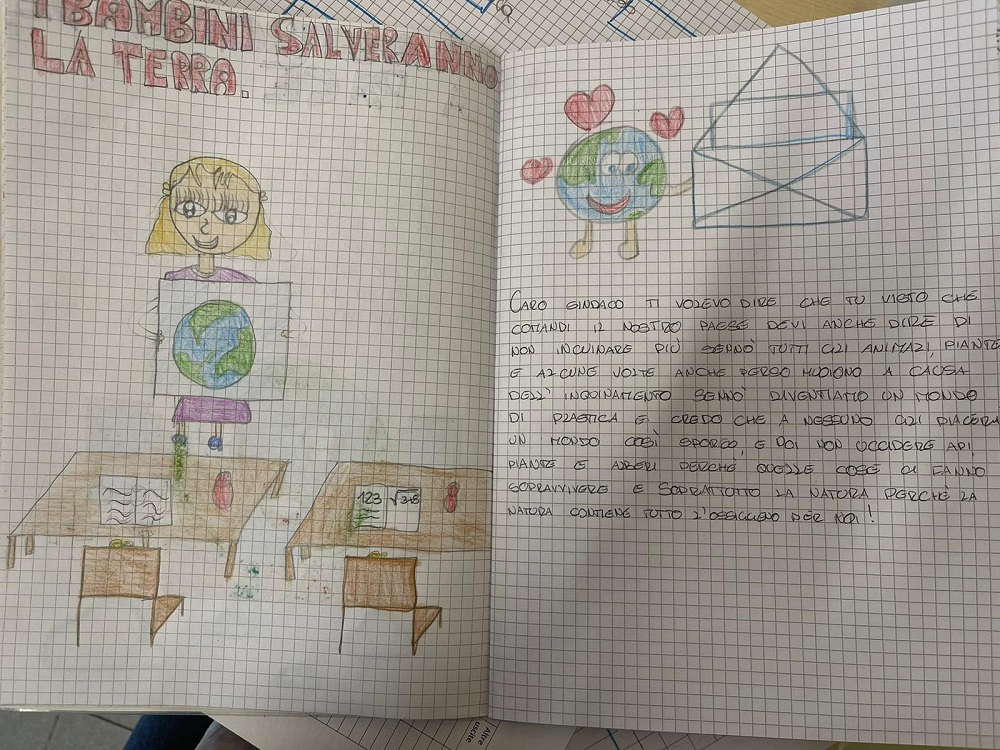 I BAMBINI SALVERANNO
LA TERRA.
123 √3+8
CARO SINDACO TI VOLEVO DIRE CHE TU VISTO CHE
COMANDI IL NOSTRO PAESE DEVI ANCHE DIRE DI
NON INCUINARE PIÙ SENNÒ TUTTI GLI ANIMALI, PIANTE
E ALCUNE VOLTE ANCHE PERSO MUOIONO A CAUSA
DELL' INQUINAMENTO SENNÒ DIVENTIAMO UN MONDO
DI PLASTICA E CREDO CHE A NESSUNO GLI PIACERA
UN MONDO COSÌ SPORCO, E POI NON UCCIDERE API,
PIANTE E ALBERI PERCHÉ QUELLE COSE CI FANNO
SOPRAVVIVERE E SOPRATTUTTO LA NATURA PERCHÈ LA
NATURA CONTIENE TUTTO L'OSSIGENO PER NOI!
Altre
uscite